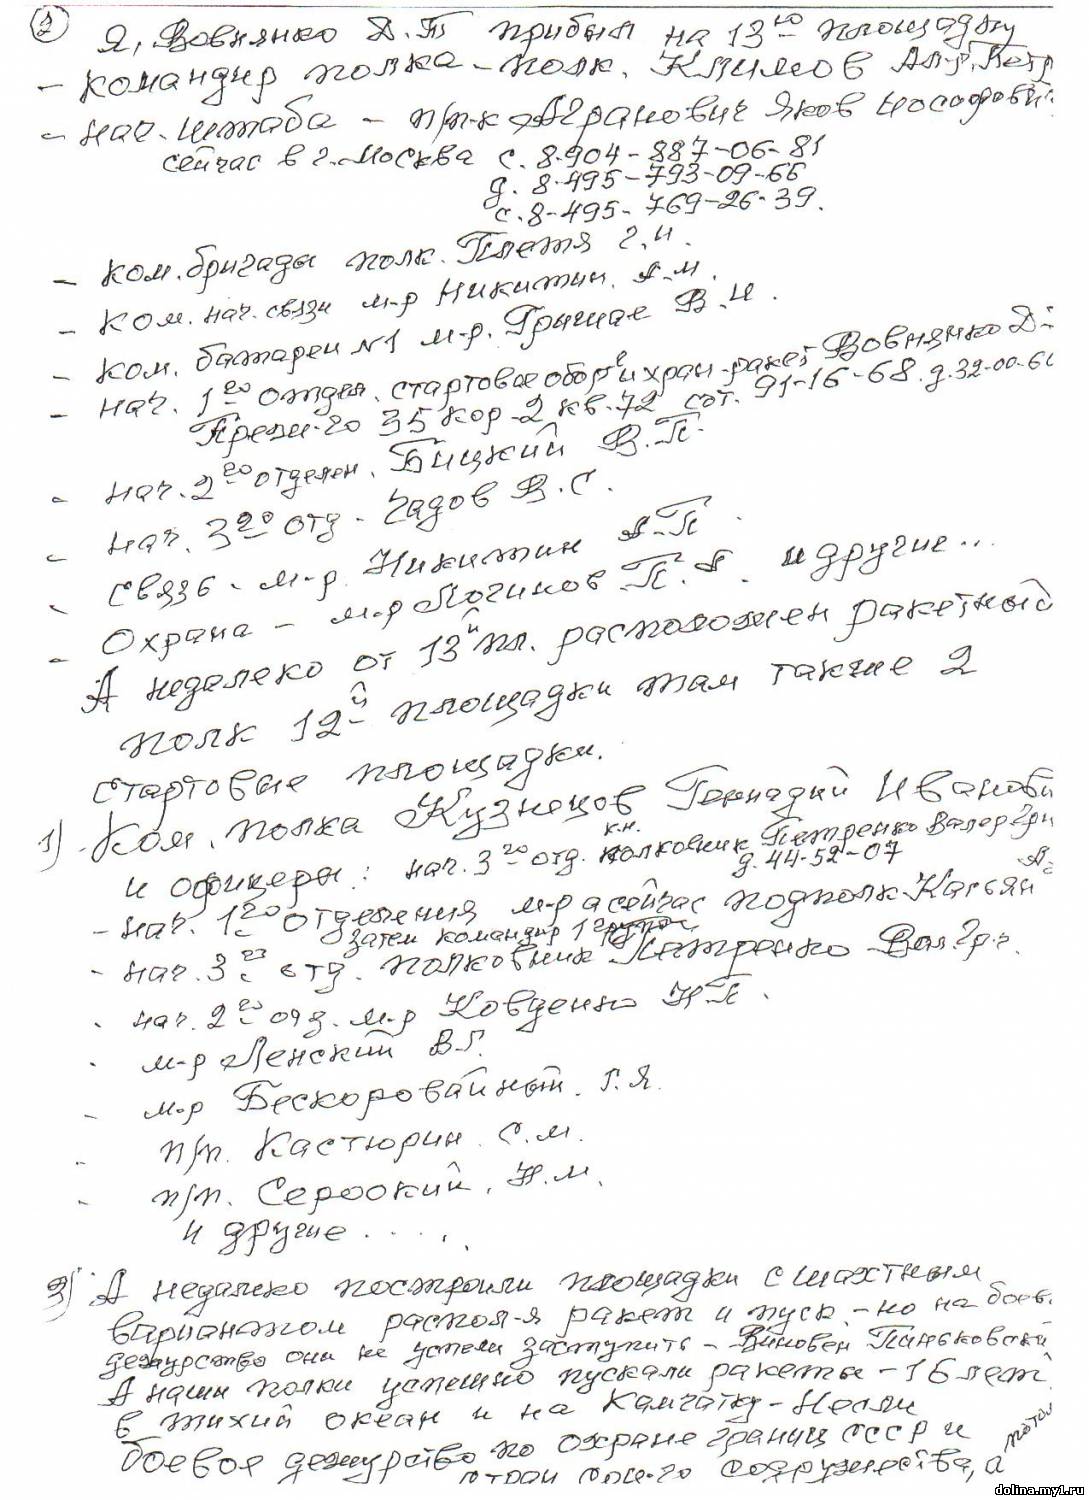 2
Я, Вовнянко Д.Т прибыл на 13ую площадку
- командир полка - полк. Климов Ал-р. Петр
- нач. штаба - п/п-к Агранович Яков
сейчас в г. Москва с. 8-904-887-06-81
д. 8-495-793-09-66
с. 8-495-769-26-39.
- ком. бригады полк. Плетя Г.И.
- ком. нач. связи м-р Никитин. А.М.
- ком. батареи №1 м-р. Гришае В.И.
- нач. 1го отдел. стартовое обор и хран-ракет Вовнянко Д-
35 кор-2 кв.72 сот. 91-16-68. д.32-00-60
- нач. 2го отделен. Бицкий В.П.
- нач. 3го отд. Чадов В.С.
- связь - м-р. Никитин А.П.
- Охрана - м-р Логинов П.А. и другие...
А недалеко от 13й пл. расположен ракетный
полк 12й площадки там также 2
стартовые площадки.
1) Ком. полка Кузнецов Геннадий Иванови
к.н.
и офицеры: нач. 3го отд. полковник Петренко Валер Гри
д. 44-52-07
- нач. 1го отделения м-р а сейчас подполк Касьян А-
затем командир 1 группы
- нач. 3го отд. полковник Петренко Вал Гр.
- нач. 2го отд. м-р Ковценко Н.П.
- м-р Ленский В.Г.
- м-р Бескоровайный. Г.Я.
- п/п. Кастюрин. С.М.
- п/п. Н.М.
и другие .....
3) А недалеко построили площадки с шахтным
вариантом распол-я ракет и пуск - но на боев.
дежурство они не успели заступить - Виновен Паньковский
А наши полки успешно пускали ракеты - 16 лет
в тихий океан и на Камчатку - Несли
боевое дежурство по охране границ СССР и
содружества, а потом
dolina.my1.ru